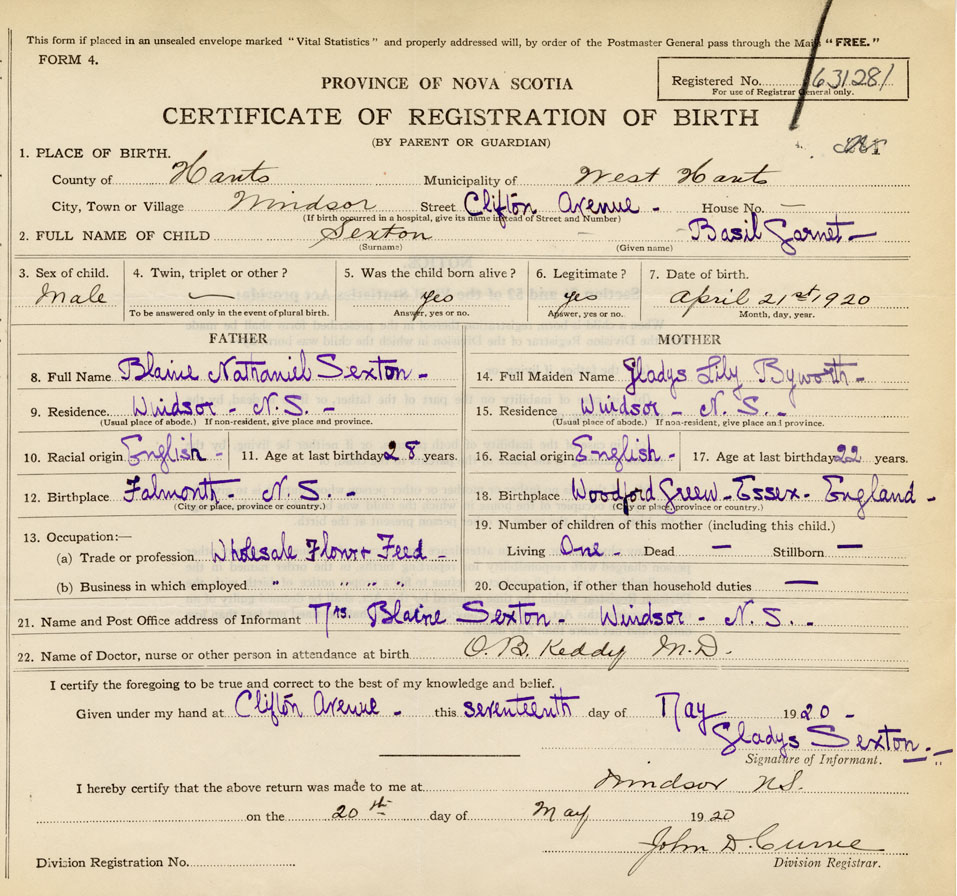 This form if placed in an unsealed envelope marked "Vital Statistics" and properly addressed will, by order of the Postmaster General pass through the Mail "FREE."
FORM 4.
PROVINCE OF NOVA SCOTIA
Registered No. 631281
For use of Registrar General only.
CERTIFICATE OF REGISTRATION OF BIRTH
(BY PARENT OR GUARDIAN)
1. PLACE OF BIRTH.
County of Hants Municipality of West Hants
City, Town or Village Windsor Street Clifton Avenue - House No. —
(If birth occurred in a hospital, give its name instead of Street and Number)
2. FULL NAME OF CHILD Sexton Basil Garnet —
(Surname) (Given name)
3. Sex of child. 4. Twin, triplet or other? 5. Was the child born alive? 6. Legitimate? 7. Date of birth.
Male — yes yes April 21st 1920
To be answered only in the event of plural birth. Answer, yes or no. Answer, yes or no. Month, day, year.
FATHER MOTHER
8. Full Name Blaine Nathaniel Sexton - 14. Full Maiden Name Gladys Lily Byworth -
9. Residence Windsor - N.S. - 15. Residence Windsor - N.S. -
(Usual place of abode.) If non-resident, give place and province. (Usual place of abode.) If non-resident, give place and province.
10. Racial origin English - 11. Age at last birthday 28 years. 16. Racial origin English - 17. Age at last birthday 22 years.
12. Birthplace Falmouth - N.S. - 18. Birthplace Woodford Green - Essex - England -
(City or place, province or country.) (City or place, province or country.)
13. Occupation:— 19. Number of children of this mother (including this child.)
(a) Trade or profession Wholesale Flour & Feed - Living One - Dead — Stillborn —
(b) Business in which employed " " " " 20. Occupation, if other than household duties —
21. Name and Post Office address of Informant Mrs. Blaine Sexton - Windsor - N.S. -
22. Name of Doctor, nurse or other person in attendance at birth O. B. Keddy M.D.
I certify the foregoing to be true and correct to the best of my knowledge and belief.
Given under my hand at Clifton Avenue - this seventeenth day of May 1920 -
Gladys Sexton.
Signature of Informant.
I hereby certify that the above return was made to me at Windsor N.S.
on the 20th day of May 1920
John D. Currie
Division Registrar.
Division Registration No.